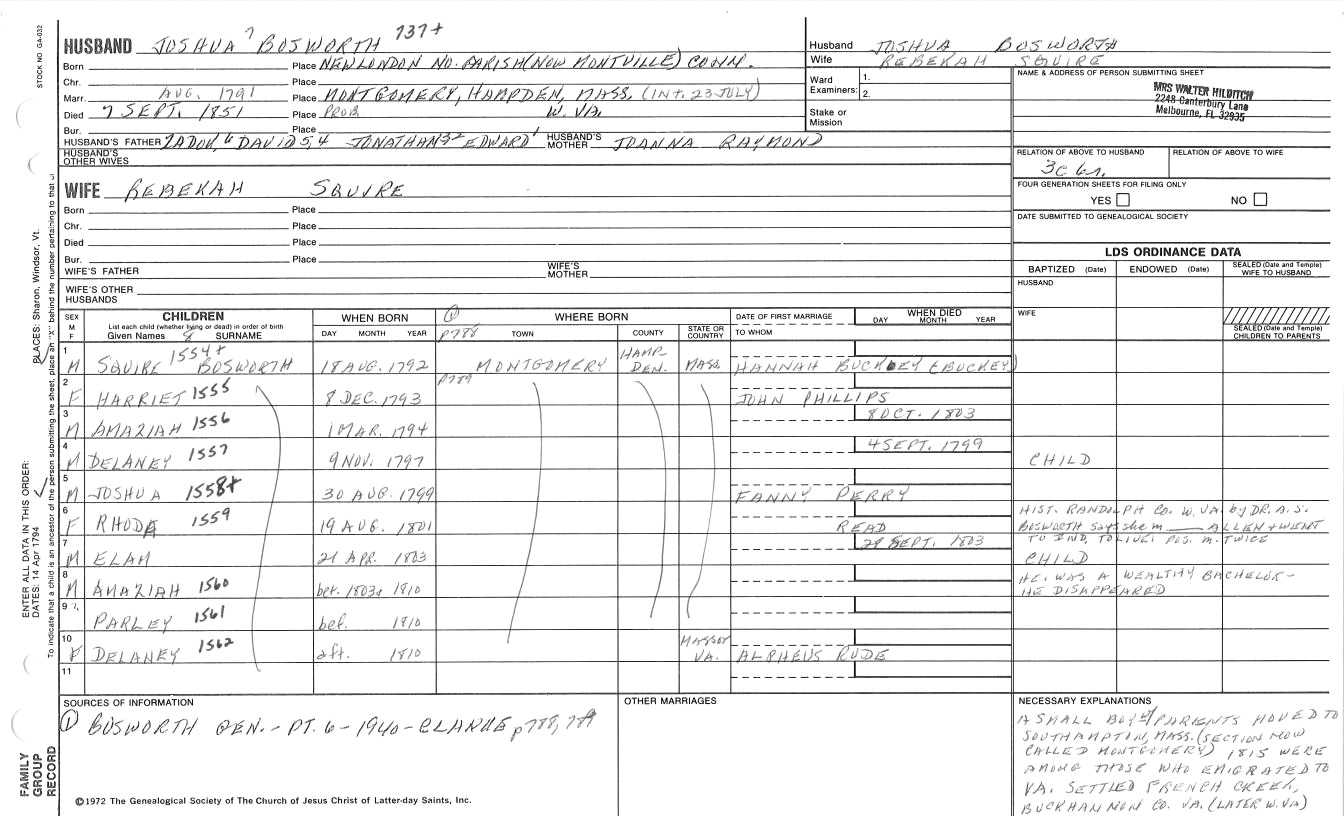 STOCK NO. GA-032
HUSBAND JOSHUA 7 BOSWORTH 737+
Born Place NEW LONDON NO. PARISH (NOW MONTVILLE) CONN.
Chr. Place
Marr. AUG. 1791 Place MONTGOMERY, HAMPDEN, MASS. (INT. 23 JULY)
Died 7 SEPT. 1851 Place PROB. W. VA.
Bur. Place
HUSBAND'S FATHER ZADOK, 6 DAVID 5,4 JONATHAN 3,2 EDWARD 1 HUSBAND'S MOTHER JOANNA RAYMOND
HUSBAND'S OTHER WIVES
Husband JOSHUA BOSWORTH
Wife REBEKAH SQUIRE
Ward Examiners: 1.
2.
Stake or Mission
NAME & ADDRESS OF PERSON SUBMITTING SHEET
MRS WALTER HILDITCH
2248 Canterbury Lane
Melbourne, FL 32935
RELATION OF ABOVE TO HUSBAND RELATION OF ABOVE TO WIFE
3C 6r.
FOUR GENERATION SHEETS FOR FILING ONLY
YES NO
DATE SUBMITTED TO GENEALOGICAL SOCIETY
WIFE REBEKAH SQUIRE
Born Place
Chr. Place
Died Place
Bur. Place
WIFE'S FATHER WIFE'S MOTHER
WIFE'S OTHER HUSBANDS
LDS ORDINANCE DATA
BAPTIZED (Date) ENDOWED (Date) SEALED (Date and Temple) WIFE TO HUSBAND
HUSBAND
WIFE
SEALED (Date and Temple) CHILDREN TO PARENTS
SEX M F
CHILDREN
List each child (whether living or dead) in order of birth
Given Names 8 SURNAME
WHEN BORN
DAY MONTH YEAR
① WHERE BORN
p788 TOWN COUNTY STATE OR COUNTRY
DATE OF FIRST MARRIAGE
TO WHOM
WHEN DIED
DAY MONTH YEAR
1 M SQUIRE 1554+ BOSWORTH 18 AUG. 1792 MONTGOMERY HAMPDEN. MASS. HANNAH BUCKLEY (BUCKEY)
2 F HARRIET 1555 8 DEC. 1793 p789 JOHN PHILLIPS
3 M AMAZIAH 1556 1 MAR. 1794 8 OCT. 1803
4 M DELANEY 1557 9 NOV. 1797 4 SEPT. 1799 CHILD
5 M JOSHUA 1558+ 30 AUG. 1799 FANNY PERRY
6 F RHODA 1559 19 AUG. 1801 READ
HIST. RANDOLPH CO. W. VA. by DR. A. S.
BOSWORTH says she m ___ ALLEN + WENT
TO IND. TO LIVE. POS. M. TWICE
7 M ELAM 21 APR. 1803 29 SEPT. 1803 CHILD
8 M AMAZIAH 1560 bet. 1803 & 1810
HE WAS A WEALTHY BACHELOR-
HE DISAPPEARED
9 PARLEY 1561 bef. 1810
10 F DELANEY 1562 aft. 1810 MASS or VA. ALPHEUS RUDE
11
SOURCES OF INFORMATION
① BOSWORTH GEN. - PT. 6 - 1940 - CLARKE p788, 789
OTHER MARRIAGES
NECESSARY EXPLANATIONS
A SMALL BOY w/ PARENTS MOVED TO
SOUTHAMPTON, MASS. (SECTION NOW
CALLED MONTGOMERY) 1815 WERE
AMONG THOSE WHO EMIGRATED TO
VA. SETTLED FRENCH CREEK,
BUCKHANNON CO. VA. (LATER W. VA)
ENTER ALL DATA IN THIS ORDER:
DATES: 14 Apr 1794
PLACES: Sharon, Windsor, Vt.
To indicate that a child is an ancestor of the person submitting the sheet, place an "X" behind the number pertaining to that
FAMILY GROUP RECORD
©1972 The Genealogical Society of The Church of Jesus Christ of Latter-day Saints, Inc.